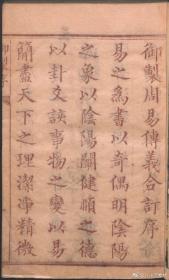 御製周易傳義合訂序
易之為書以奇偶明陰陽
之象以陰陽闡健順之德
以卦爻談事物之變以易
簡盡天下之理潔淨精微